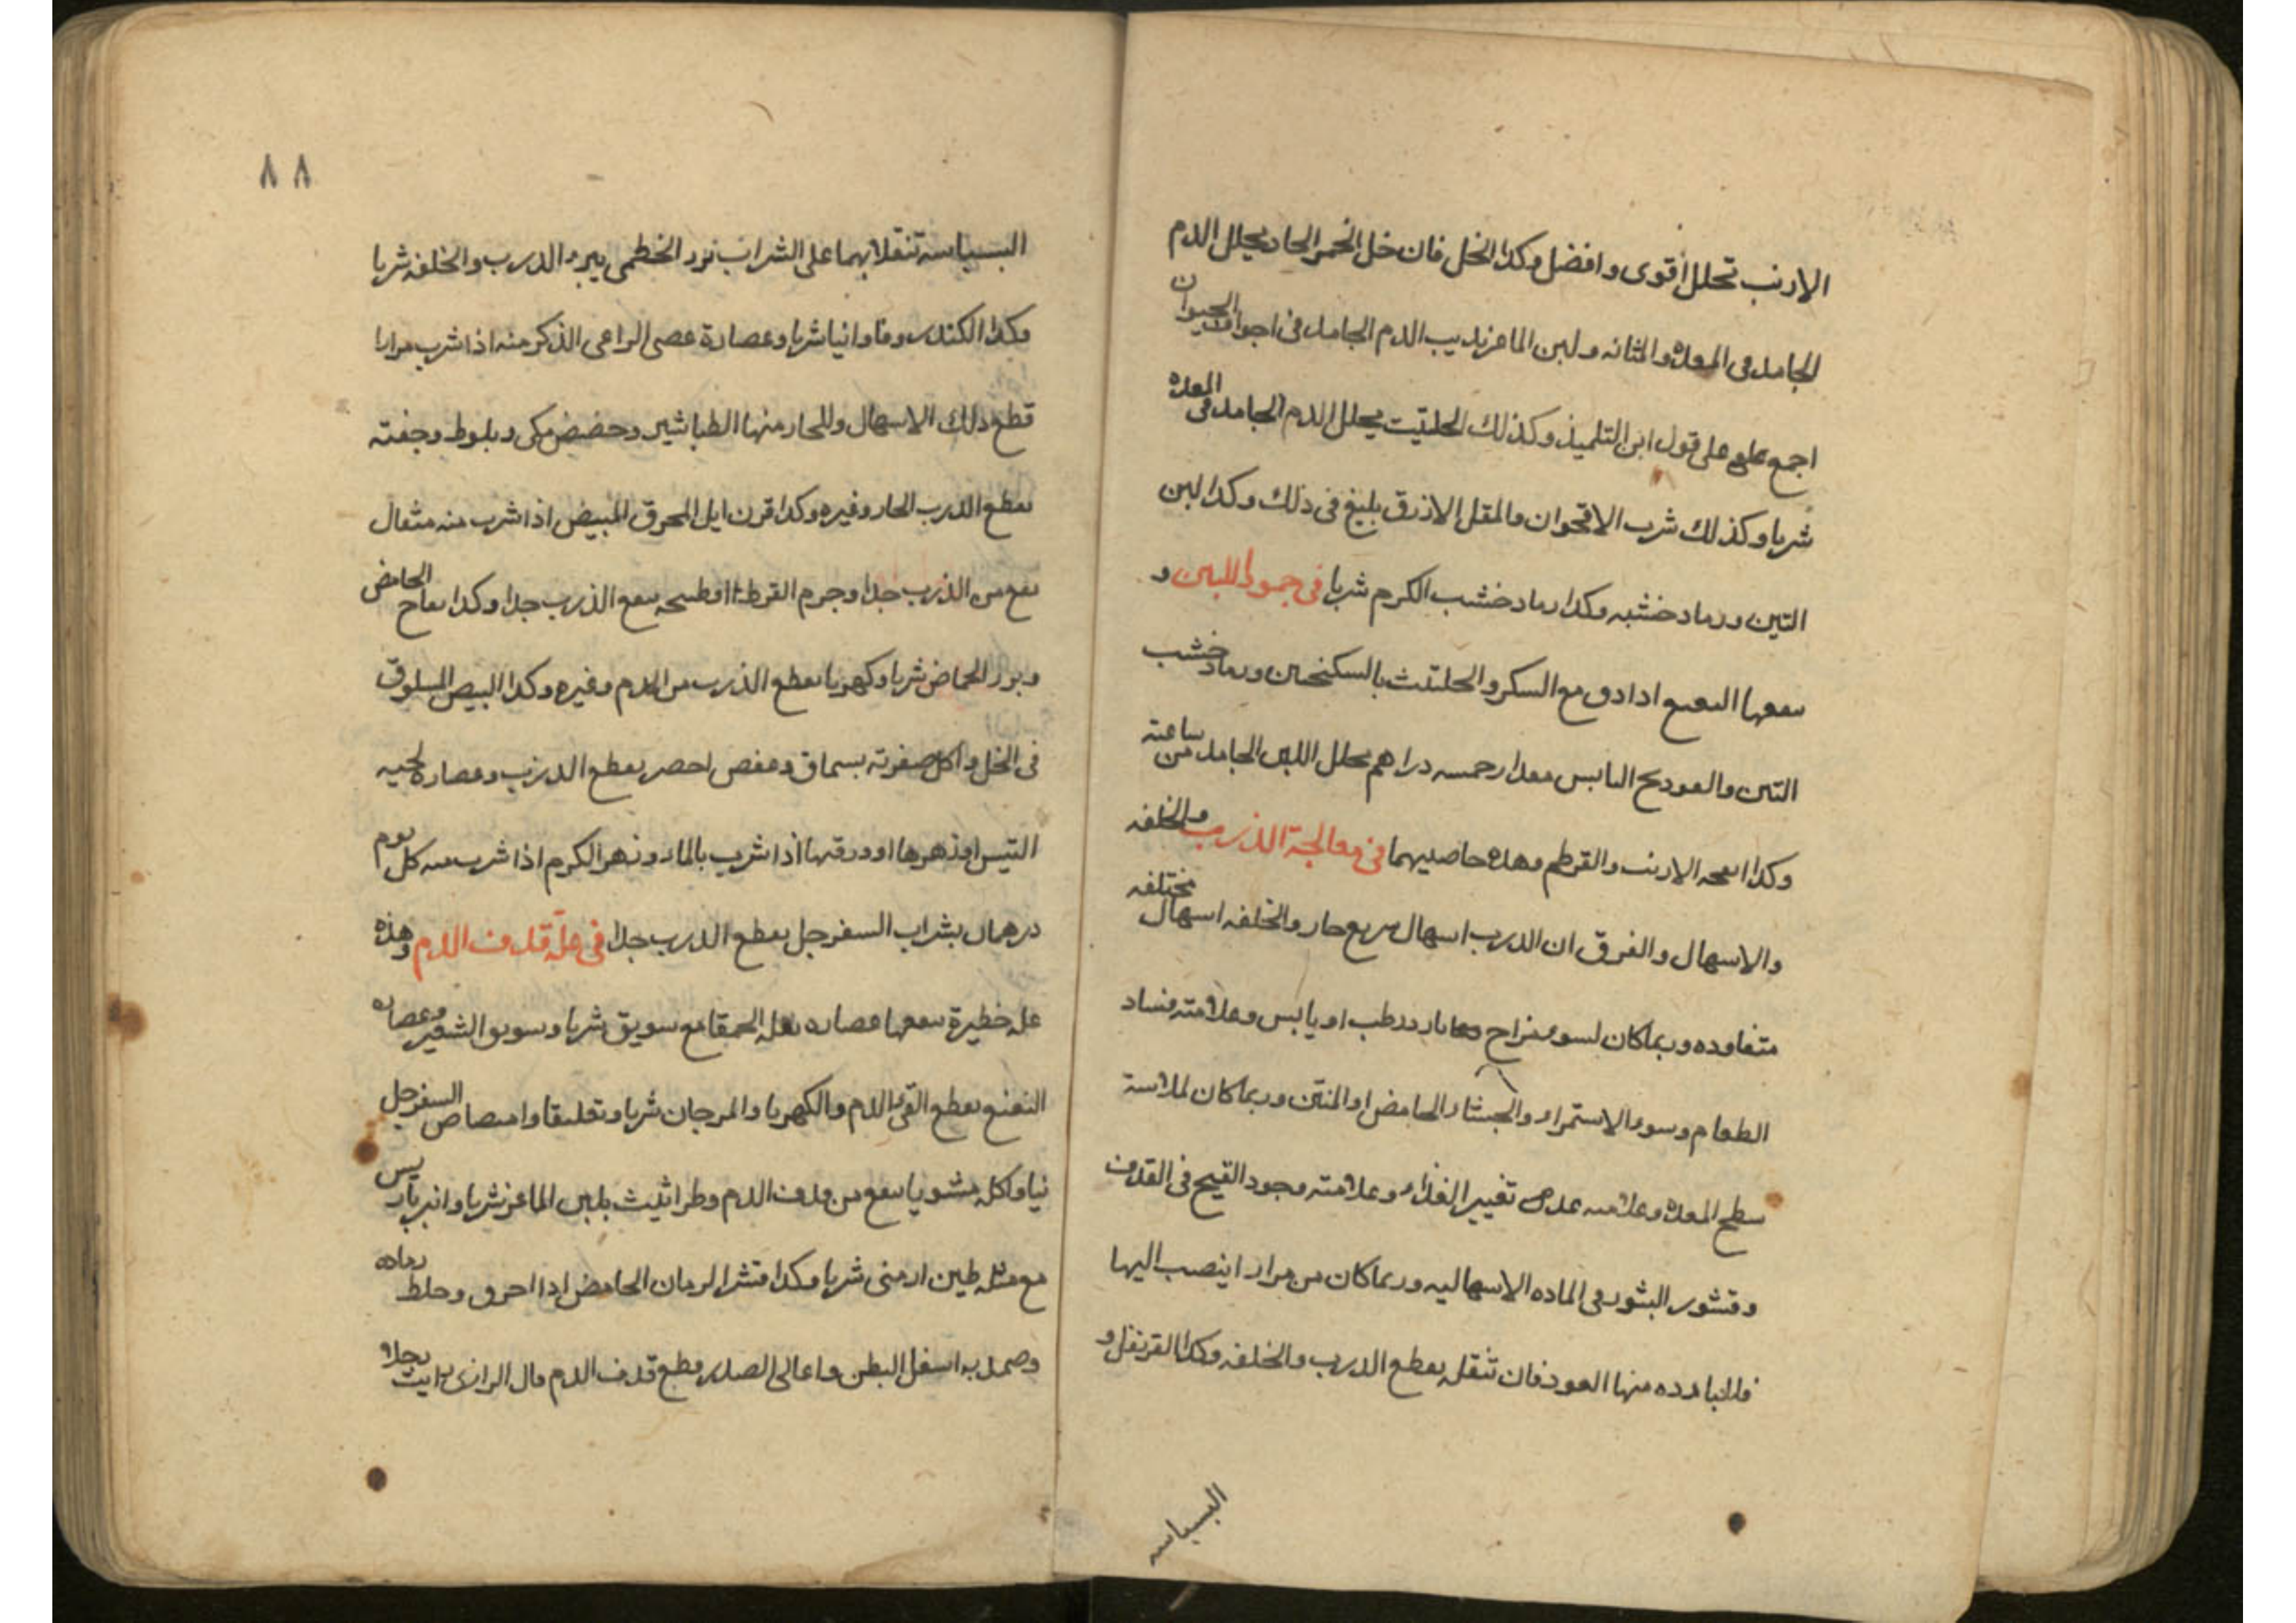 الارنب تحلل أقوى وافضل وكدا الخل فان خل الخمر الحاد يحلل الدم
الجامد فى المعدة والمثانه ولبن الماعز يديب الدم الجامد فى اجواف الحيوان
اجمع على قول ابن التلميذ وكذلك الحلتيت يحلل الدم الجامد فى المعده
شربا وكذلك شرب الاقحوان والمقل الازرق بليغ فى ذلك وكدا لبن
التين ورماد خشبه وكدا رماد خشب الكرم شربا فى جمود اللبن و
سعها النعنع ادا دق مع السكر والحلتيت بالسكنجبين ورماد خشب
التين والفودنج اليابس مقدار خمسه دراهم يحلل اللبن الجامد من ساعته
وكدا انفحه الارنب والقرطم وهده خاصيتهما فى معالجة الذرب والخلفه
والاسهال والفرق ان الدرب اسهال سريع حار والخلفه اسهال مختلفه
متفاوده وربما كان لسوء مزاج بارد رطب او يابس وعلامته فساد
الطعام وسوء الاستمراء والجشاء الحامض او المنتن وربما كان لملاسة
سطح المعدة وعلامته عدم تغيير الغذاء وعلامته وجود القيح فى القدف
وقشور البثور فى الماده الاسهاليه وربما كان من مرار اينصب اليها
فالبارده منها العود فان تنقله يقطع الدرب والخلفه وكدا القرنفل و
البسباسه
٨٨
البسباسه تنقلا بهما على الشراب بزر الخطمى يبرء الدرب والخلفه شربا
وكدا الكندر وفاوانيا شربا وعصارة عصى الراعى الذكر منه اذا شرب مرارا
قطع ذلك الاسهال وللحار منها الطباشير وحضض مكى وبلوط وجفته
يقطع الدرب الحار وغيره وكدا قرن ايل المحرق المبيض اذا شرب منه مثقال
نفع من الذرب جدا وجرم القرظ او طبيخه ينفع الذرب جدا وكدا تفاح الحامض
وبزر الحماض شربا وكهربا يقطع الذرب من الدم وغيره وكدا البيض المسلوق
فى الخل واكل صفرته بسماق وعفص اخضر يقطع الدرب وعصاره لحيه
التيس او زهرها او ورقها اذا شرب بالماء وزهر الكرم اذا شرب منه كل يوم
درهمان بشراب السفرجل يقطع الدرب جدا فى علة قدف الدم وهذه
عله خطيرة ينفعها عصاره بقله الحمقا مع سويق شربا وسويق الشعير وعصاره
النعنع يقطع القئ الدم والكهربا والمرجان شربا وتعليقا وامتصاص السفرجل
نيا واكله مشويا ينفع من قدف الدم وطراثيث بلبن الماعز شربا وانبرباريس
مع مثله طين ارمنى شربا وكدا قشر الرمان الحامض ادا احرق وخلط رماده
وضمد به اسفل البطن واعالى الصدر يقطع قدف الدم قال الرازى رايت رجلا